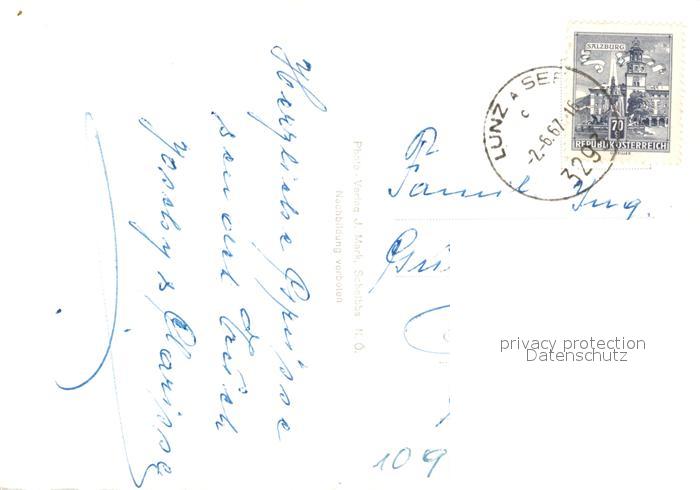 Herzliche Grüsse
senden Euch
Photo-Verlag J. Mark, Scheibbs N.Ö.
Nachbildung verboten
SALZBURG
70
REPUBLIK ÖSTERREICH
LUNZ A SEE
c
-2.-6.67-16
3293
Familie Ing.
109
privacy protection
Datenschutz